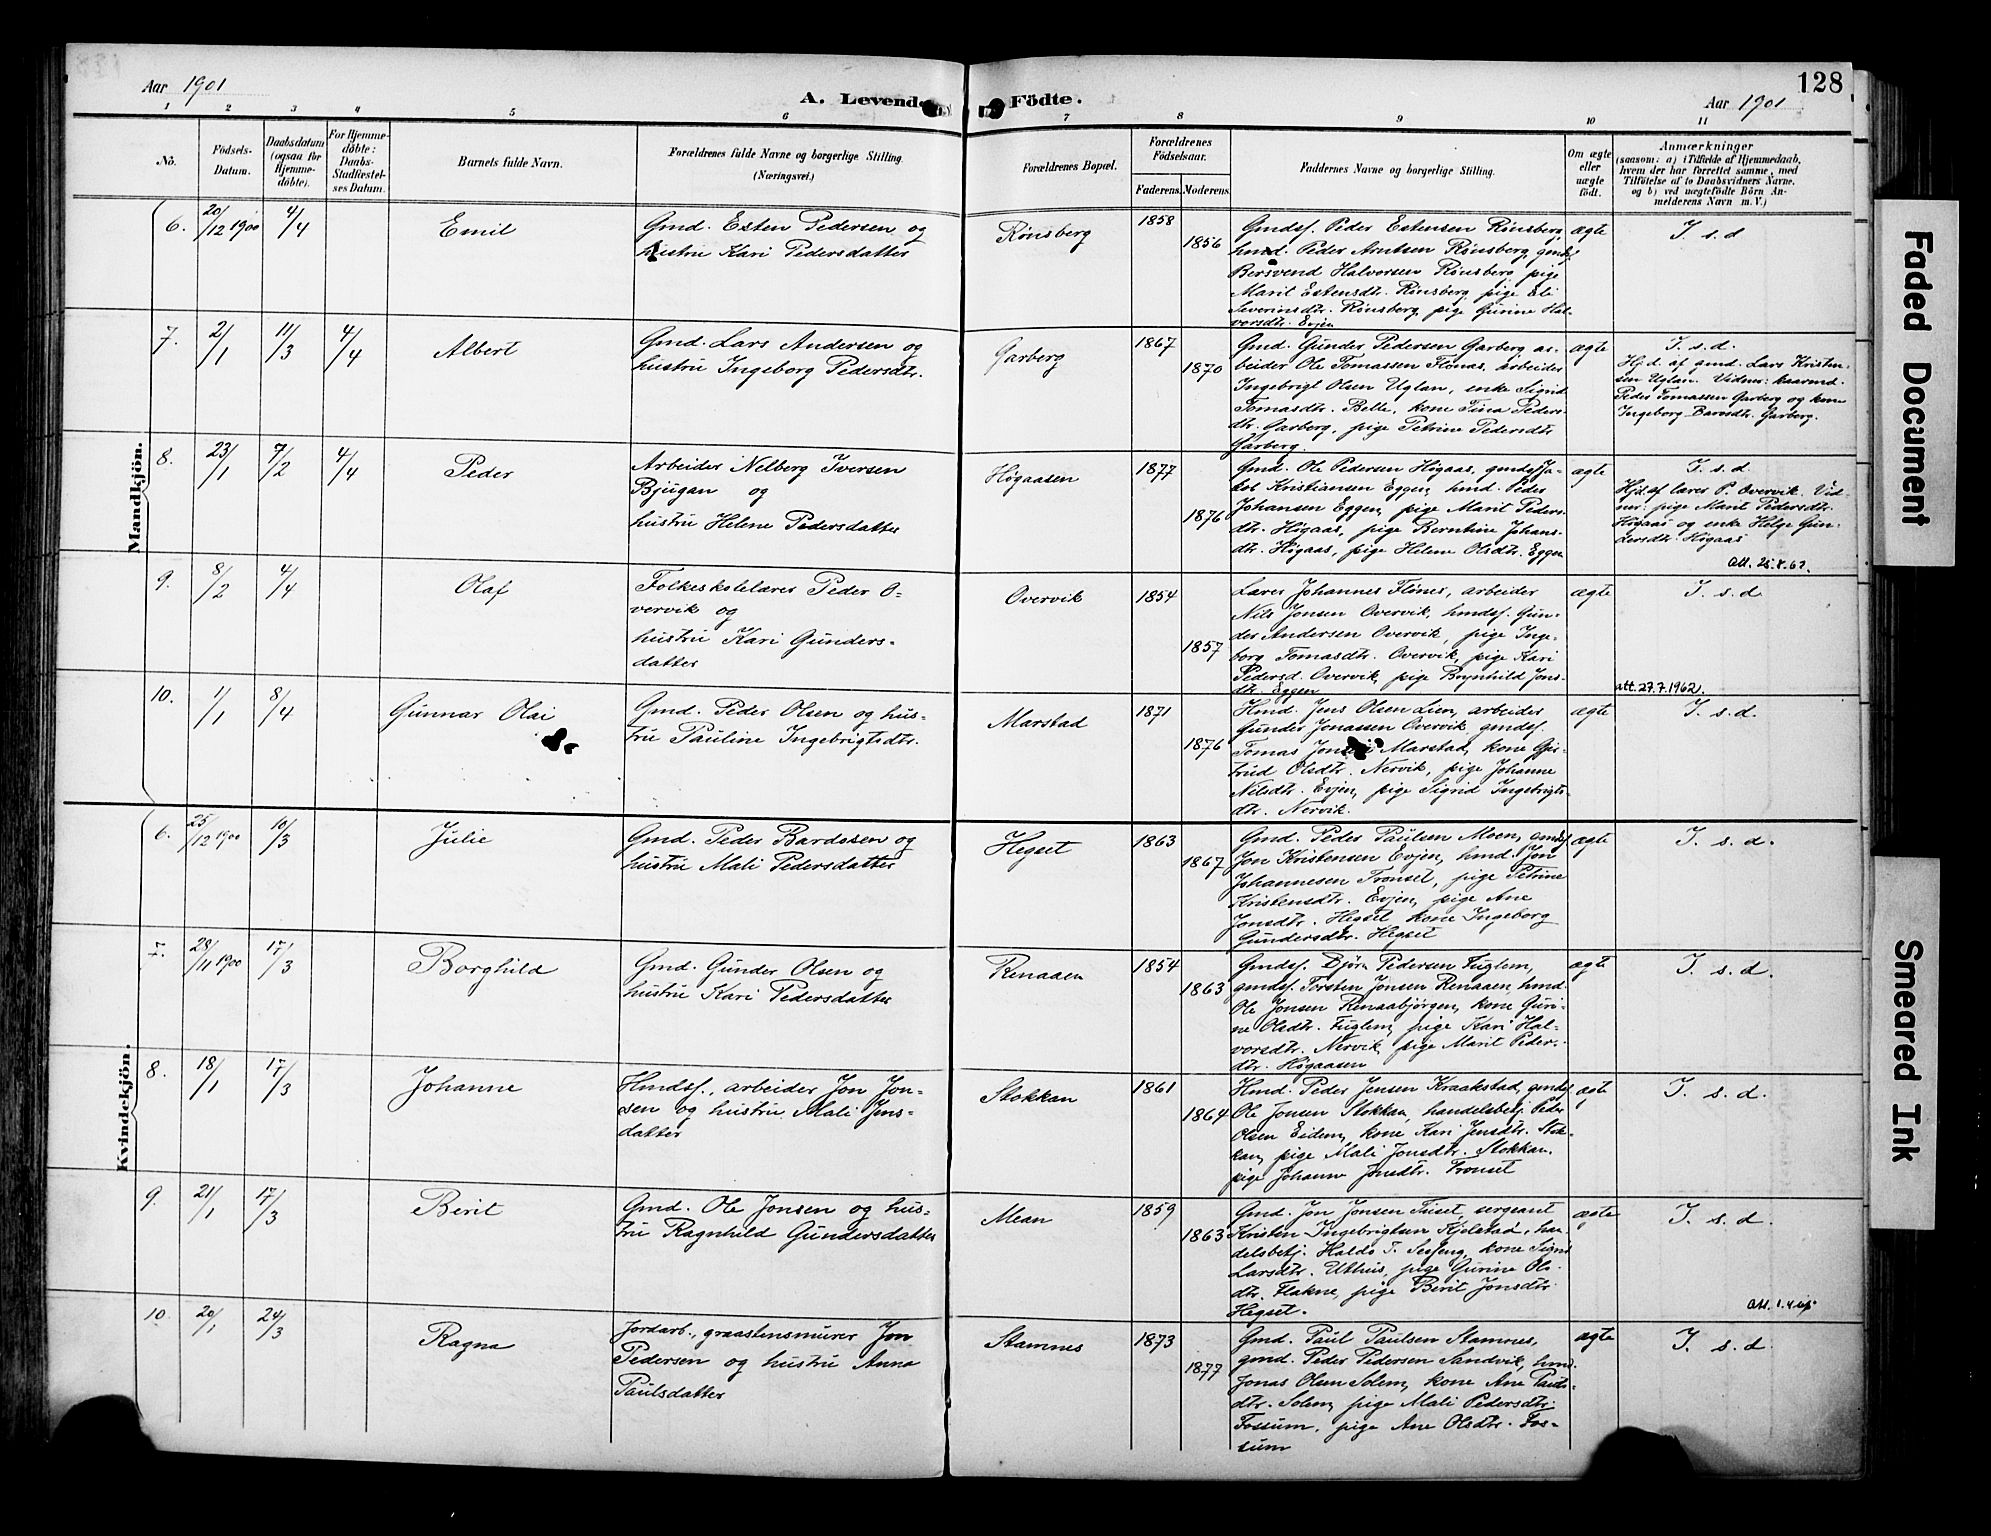 128
Aar 1901
A. Levende Födte.
Aar 1901
1 2 3 4 5 6 7 8 9 10 11
No.
Födsels-
Datum.
Daabsdatum
(ogsaa for
Hjemme-
döbte).
For Hjemme-
döbte:
Daabs-
Stadfæstel-
ses Datum.
Barnets fulde Navn.
Forældrenes fulde Navne og borgerlige Stilling.
(Næringsvei.)
Forældrenes Bopæl.
Forældrenes
Födselsaar.
Faderens. Moderens.
Faddernes Navne og borgerlige Stilling.
Om ægte
eller
uægte
födt.
Anmærkninger
(saasom: a) i Tilfælde af Hjemmedaab,
hvem der har forrettet samme, med
Tilföielse af to Daabsvidners Navne,
og b) ved uægtefödte Börn An-
melderens Navn m. V.)
Mandkjön.
6.
20/12 1900
4/4
Emil
Gmd. Esten Pedersen og
hustru Kari Pedersdatter
Rönsberg
1858
1856
Gmdsf. Peder Estensen Rönsberg,
hmd. Peder Arntsen Rönsberg, gmdsf.
Bersvend Halvorsen Rönsberg, pige
Marit Estensdtr. Rönsberg, pige Eli
Severinsdtr. Rönsberg, pige Gurine Hal-
vorsdtr. Evjen
ægte
I. s. d
7.
2/1
11/3
4/4
Albert
Gmd. Lars Andersen og
hustru Ingeborg Pedersdtr.
Garberg
1867
1870
Gmd. Gunder Pedersen Garberg, ar-
beider Ole Tomassen Flönas, arbeider
Ingebrigt Olsen Uglan, enke Sigrid
Tomasdtr. Belle, kone Tina Peders-
dtr. Garberg, pige Petrine Pedersdtr
Garberg.
ægte
I. s. d.
Hj. d. af gmd. Lars Kristen-
sen Uglan. Vidner: kaarmd.
Peder Tomassen Garberg og kone
Ingeborg Bardsdtr. Garberg.
8.
23/1
7/2
4/4
Peder
Arbeider Nelberg Iversen
Bjugan og
hustru Helene Pedersdatter
Högaasen
1877
1876
Gmd. Ole Pedersen Högaas, gmdsf. Ja-
kob Kristiansen Eggen, hmd. Peder
Johansen Eggen, pige Marit Peders-
dtr. Högaas, pige Berntine Johans-
dtr. Högaas, pige Helene Olsdtr. Eggen
ægte
I. s. d.
Hjd. af lærer P. Overvik. Vid-
ner: pige Marit Pedersdtr.
Högaas og enke Helge Gun-
dersdtr. Högaas
Att. 25.x.62.
9.
8/2
4/4
Olaf
Folkeskolelærer Peder O-
vervik og
hustru Kari Gunders-
datter
Overvik
1854
1857
Lærer Johannes Flönes, arbeider
Nils Jonsen Overvik, hmdsf. Gun-
der Andersen Overvik, pige Inge-
borg Tomasdtr. Overvik, pige Kari
Pedersd. Overvik, pige Brynhild Jons-
dtr. Eggen
ægte
I. s. d.
att. 27.7.1962.
10.
1/1
8/4
Gunnar Olai
Gmd. Peder Olsen og hus-
tru Pauline Ingebrigtsdtr.
Marstad
1871
1876
Hmd. Jens Olsen Lien, arbeider
Gunder Jonassen Overvik gmdsf.
Tomas Marstad, kone Gjer-
trud Olsdtr. Nervik, pige Johanne
Nilsdtr. Evjen, pige Sigrid Ingebrigts-
dtr. Nervik.
ægte
I. s. d.
Kvindekjön.
6.
25/12 1900
10/3
Julie
Gmd. Peder Bardosen og
hustru Mali Pedersdatter
Hegset
1863
1867
Gmd. Peder Paulsen Moen, gmdsf.
Jon Kristensen Evjen, hmd. Jon
Johannesen Tronset, pige Petrine
Kristensdtr. Evjen, pige Ane
Jonsdtr. Hegset kone Ingeborg
Gundersdtr. Hegset
ægte
I. s. d.
7.
28/11 1900
17/3
Borghild
Gmd. Gunder Olsen og
hustru Kari Pedersdatter
Renaaen
1854
1863
Gmdsf. Björn Pedersen Fuglem,
gmdsf. Torsten Jonsen Renaaen, hmd.
Ole Jonsen Renaabjörgen, kone Guri-
ne Olsdtr. Fuglem, pige Kari Hal-
vorsdtr. Nervik, pige Marit Peder-
dtr. Högaasen
ægte
I. s. d.
8.
18/1
17/3
Johanne
Hmdsf., arbeider Jon Jon-
sen og hustru Mali Jens-
datter
Stokkan
1861
1864
Hmd. Peder Jensen Kraakstad, gmdsf
Ole Jonsen Stokkan, handelsbetj. Peder
Olsen Eidem, kone Kari Jensdtr. Stok-
kan, pige Mali Jonsdtr. Stokkan.
pige Johanne Jonsdtr. Tronset
ægte
I. s. d.
9.
21/1
17/3
Berit
Gmd. Ole Jonsen og hus-
tru Ragnhild Gundersdatter
Mean
1859
1863
Gmd. Jon Jonsen Fuset, sergeant
Kristen Ingebrigtsen Kjelstad, han-
delsbetj. Haldo T. kone Signe
Larsdtr. Uthus, pige Gurine Ols-
dtr. Flakne, pige Berit Jonsdtr.
Hegset.
ægte
I. s. d.
10.
20/1
24/3
Ragna
Jordarb., graastensmurer Jon
Pedersen og hustru Anna
Paulsdatter
Stamnes
1873
1877
Gmd. Paul Paulsen Stamnes,
gmd. Peder Pedersen Sandvik, hmd.
Jonas Olsen Solem, kone Ane Pauls-
dtr. Solem, pige Mali Pedersdtr.
Fossum, pige Ane Olsdtr. Fos-
sum
ægte
I. s. d.
Faded Document
Smeared Ink